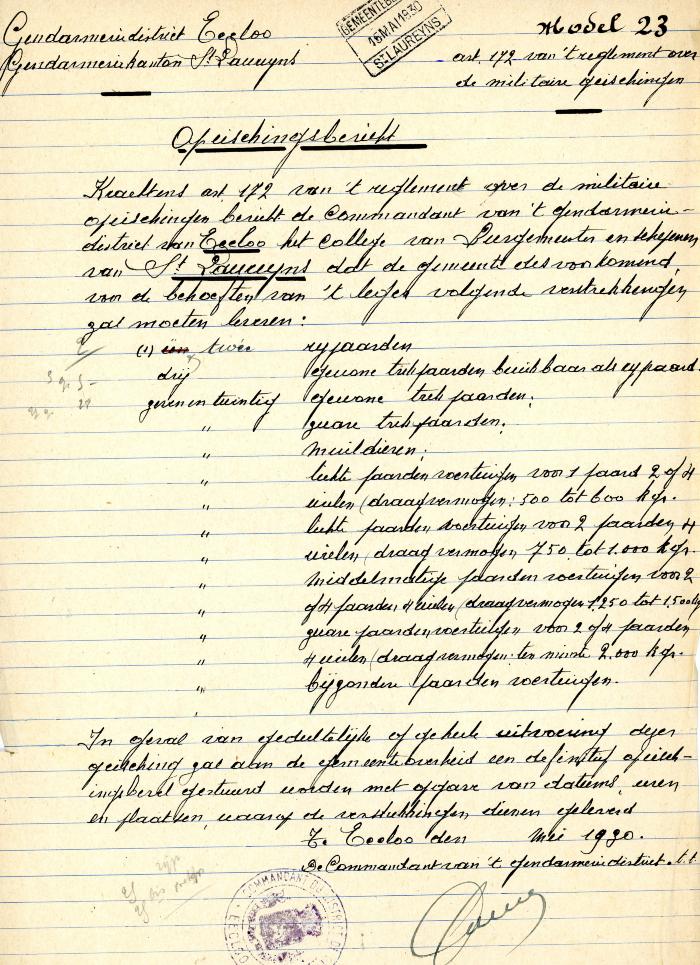 Gendarmeriedistrict Eecloo
Gendarmeriekanton St Laureyns
GEMEENTEBE
16 MAI 1930
ST LAUREYNS
Model 23
art. 172 van 't reglement over
de militaire opeischingen
Opeischingsbericht
Krachtens art. 172 van 't reglement over de militaire
opeischingen bericht de Commandant van 't gendarmerie-
district van Eecloo het College van Burgemeester en schepenen
van St Laureyns dat de gemeente desvoorkomend,
voor de behoeften van 't leger volgende verstrekkingen
zal moeten leveren:
(1) een twee rypaarden
drij gewone trekpaarden bruikbaar als rypaard.
zeven en twintig gewone trekpaarden;
" zware trekpaarden;
" muildieren;
" lichte paardenvoertuigen voor 1 paard 2 of 4
wielen (draagvermogen: 500 tot 600 kgr.
" lichte paarden voertuigen voor 2 paarden 4
wielen (draagvermogen 750 tot 1.000 kgr.
" middelmatige paarden voertuigen voor 2
" of 4 paarden 4 wielen (draagvermogen 1.250 tot 1.500 kg
" zware paardenvoertuigen voor 2 of 4 paarden
" 4 wielen (draagvermogen: ten minste 2.000 kgr.
" bijzondere paarden voertuigen.
In geval van gedeeltelijke of geheele uitvoering dezer
opeisching zal aan de gemeenteoverheid een definitief opeisch-
ingsbevel gestuurd worden met opgave van datums, uren
en plaatsen, waarop de verstrekkingen dienen geleverd
Te Eecloo den Mei 1930.
De Commandant van 't gendarmeriedistrict. t.t.
COMMANDANT DU DISTRICT DE
EECLOO